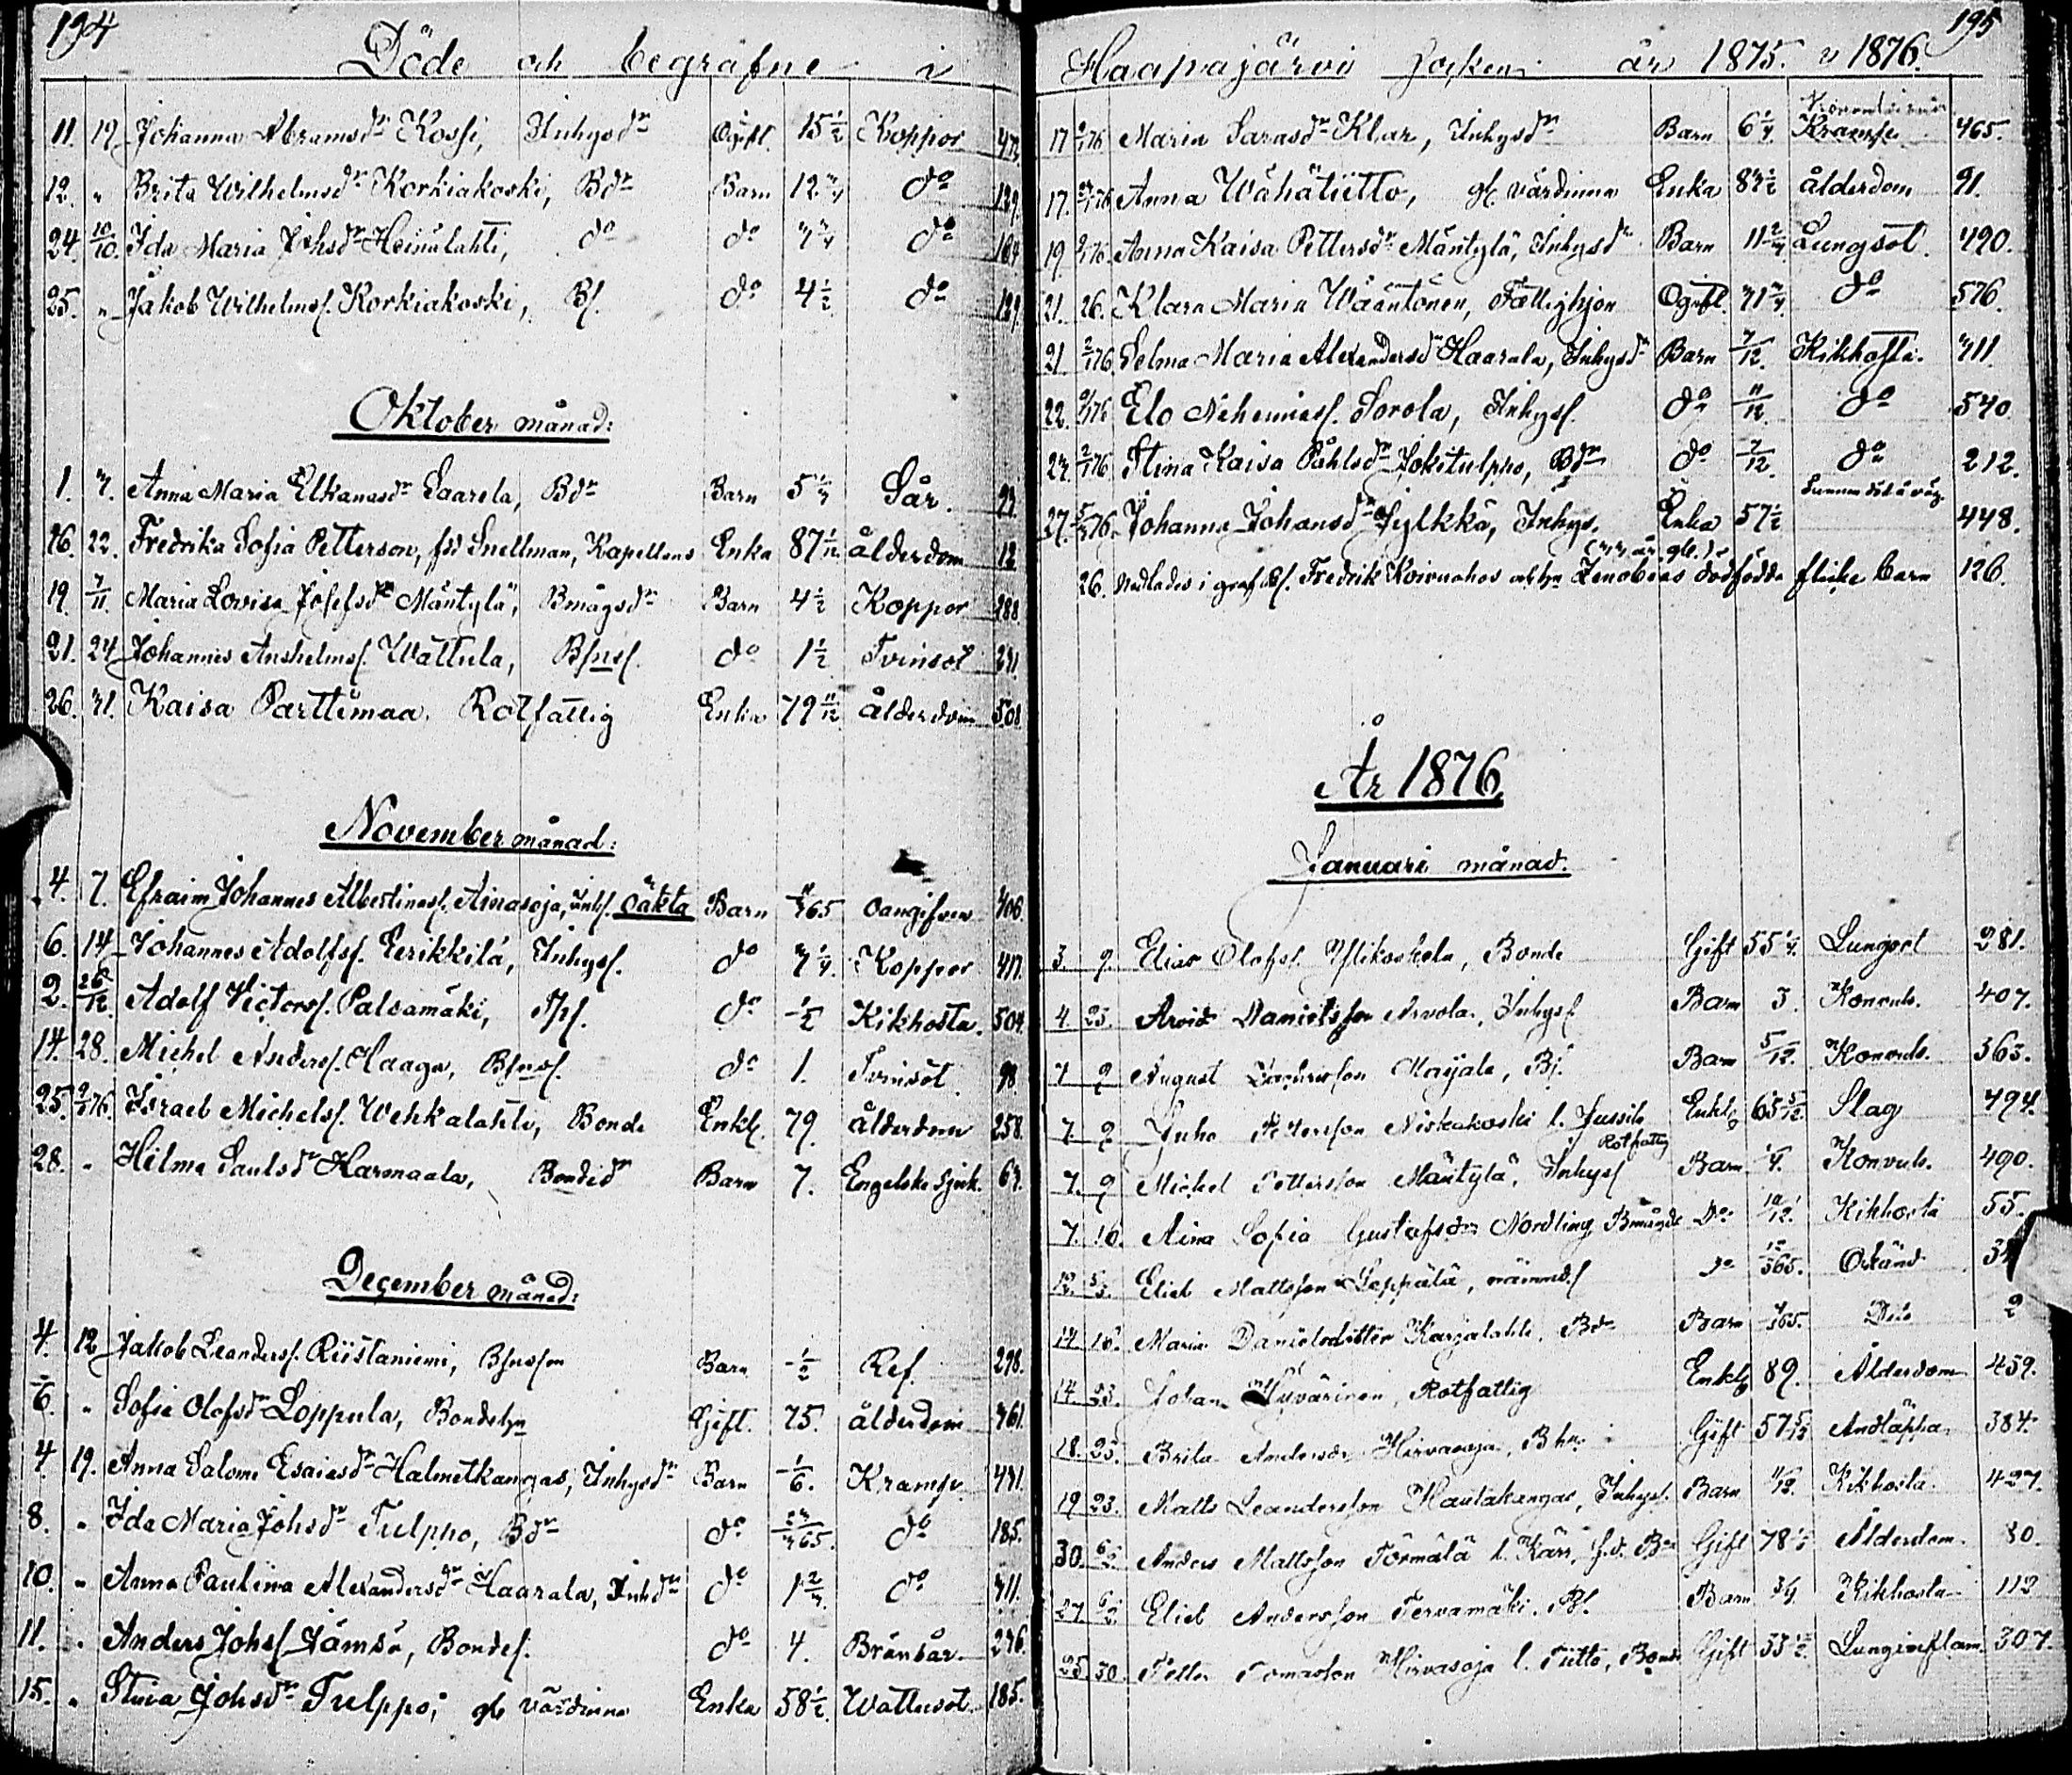 194
Döde och begrafne i
11. 19. Johanna Abramsdr Kossi, Inhysdr Ogift. 15 1/2 Koppor
12. " Brita Wilhelmsdr Korkiakoski, Bdr Barn 12 3/4 do 129.
24. 10/10. Ida Maria Johsdr Heinälahti, do do 3/4 do 164
25. " Jakob Wilhelmss. Korkiakoski, Bs. do 4 1/2 do 129.
Oktober månad:
1. 3. Anna Maria Elkanasdr Saarela, Bdr Barn Sår.
16. 22. Fredrika Sofia Petterson, fdd Snellman, Kapellans Enka 87 1/12 ålderdom 12
19. 7/11. Maria Lovisa Josefsdr Mäntylä, Bmågsdr Barn 4 1/2 Koppor 288
21. 24 Johannes Anshelmss. Wattula, Bsns. do 1 1/2 Tvinsot 231.
26. 31. Kaisa Parttimaa. Rotfattig Enka 79 11/12 ålderdom 508
November månad:
4. 7. Efraim Johannes Albertinass. Ainasoja, Inhs. oäkta Barn 4/365 oangifven 406.
6. 14 Johannes Adolfss. Eerikkilä, Inhyss. do 3 1/4. Koppor 417.
2. 26/12 Adolf Victorss. Palsamäki, do 1/2 Kikhosta. 504.
14. 28. Michel Anderss. Haaga, Bsns. do 1. Tvinsot 98
25. 2/1 76. Israel Michelss. Wehkalahti, Bonde Enkl. 79. ålderdom 258.
28. " Hilma Saulsdr Harmaala, Bondedr Barn 7. Engelska sjuk. 63.
December månad:
4. 12 Jakob Leanderss. Riistaniemi, Bsnsson Barn 1/2 Ref. 298.
6. " Sofia Olofsdr Loppula, Bondehn Gift. 75. ålderdom 361.
4 19. Anna Salome Esaiasdr Halmetkangas, Inhysdr Barn 1/6. Kramp. 441.
8. " Ida Maria Johsdr Tulppo, Bdr do 23/365. do 185.
10. " Anna Paulina Alexandersdr Haarala, Inhdr do 1 2/3. do 311.
11. " Anders Johss. Jämsä, Bondes. do 4. Brånsår. 236.
15. " Stina Johsdr Tulppo, gl. värdinna Enka 58 1/2. Wattusot. 185.
195
Haapajärvi Socken år 1875. o 1876.
17 2/1 76 Maria Sarasdr Klar, Inhysdr Barn 6 1/4. Kramp. 465.
17. 2/1 76 Anna Wähätiitto, gl. värdinna Enka 83 1/2 ålderdom 91.
19 2/1 76. Anna Kaisa Pettersdr Mäntylä, Inhysdr Barn 11 2/4 Lungsot. 490.
21. 26. Klara Maria Wääntönen, Fattighjon Ogift. 31 3/4. do 576.
21. 2/1 76 Selma Maria Alexandersdr Haarala, Inhysdr Barn 7/12. Kikhosta. 311.
22. 2/1 76 Elo Nehemiass. Sorola, Inhyss. do 11/12. do 540
23. 2/1 76 Stina Kaisa Påhlsdr Jokitulppo, Bdr do 7/12. do 212.
27. 76. Johanna Johansdr Jylkkä, Inhys. Enka 57 1/2 448.
(33 år gl.)
26. Nedlades i graf Bs. Fredrik Koivuahos o hn Zenobias dödfödda flicke barn 126.
År 1876.
Januari månad.
3. 9. Elias Olofss. Ylikoskela, Bonde Gift 55 1/4. Lungsot 281.
4. 23. Arvid Danielsson Arvola, Inhyss Barn 3. Konvuls. 407.
7 9 August Zachrisson Marjala, Bs. Barn 5/12. Konvuls. 363.
7. 9 Juho Pettersson Niskakoski l. Jussila Rotfattig Enkl. 65 5/12. Slag 494.
7. 9 Michel Pettersson Mäntylä, Inhyss Barn 1/4. Konvuls. 490.
7. 16. Aina Sofia Gustafsdr Nordling, Bmågdr Do 10/12. Kikhosta 55.
12. Elieb Mattsson Leppälä, nämnds. do 12/365. Okänd
14 16. Maria Danielsdotter Karjalahti, Bdr Barn Dito 2
14. 23. Johan Hyvärinen, Rotfattig Enkl. 89. Ålderdom 459.
18. 23. Brita Andersdr Hirvasoja, Bhn Gift 57 5/12 Andtäppa 384.
19 23. Matts Leandersson Hautakangas, Inhyss. Barn 4/12. Kikhosta. 427.
30. 6/2. Anders Mattsson Törmälä l. Kärr, f.d. Bn Gift 78 1/2 Ålderdom. 80.
27. 6/2. Elieb Andersson Tervamäki. Bs. Barn 3/4 Kikhosta 112
25. 30. Petter Tomasson Hirvasoja l. Tiitto, Bonde Gift 33 1/2 Lunginflam. 307.